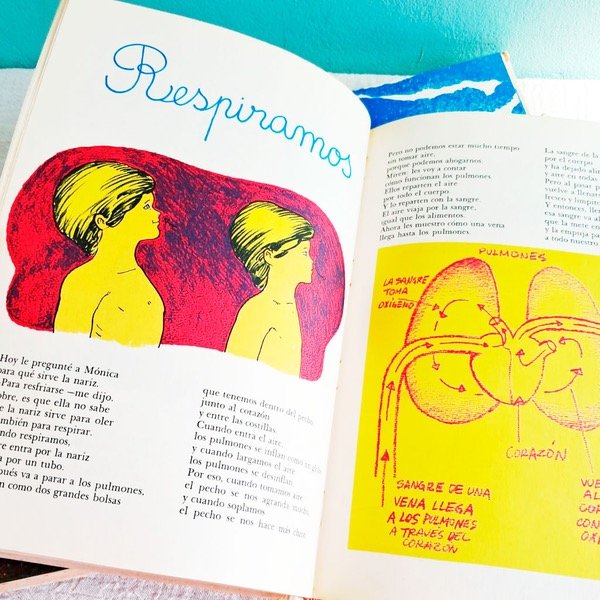 Respiramos
Hoy le pregunté a Mónica
para qué sirve la nariz.
—Para resfriarse —me dijo.
es que ella no sabe
la nariz sirve para oler
también para respirar.
respiramos,
entra por la nariz
por un tubo.
va a parar a los pulmones,
como dos grandes bolsas
que tenemos dentro del pecho,
junto al corazón
y entre las costillas.
Cuando entra el aire,
los pulmones se inflan como
y cuando largamos el aire
los pulmones se desinflan.
Por eso, cuando tomamos aire
el pecho se nos agranda mucho,
y cuando soplamos
el pecho se nos hace más chico.
Pero no podemos estar mucho tiempo
sin tomar aire,
porque podemos ahogarnos.
Miren: les voy a contar
cómo funcionan los pulmones.
Ellos reparten el aire
por todo el cuerpo
Y lo reparten con la sangre.
El aire viaja por la sangre,
igual que los alimentos.
Ahora les muestro cómo una vena
llega hasta los pulmones.
La sangre de la
por el cuerpo
y ha dejado
aire en todas
Pero al pasar
vuelve a
fresco y
Y entonces,
esa sangre va al
que la mete en
y la empuja
a todo nuestro
PULMONES
LA SANGRE
TOMA
OXÍGENO
CORAZÓN
SANGRE DE UNA
VENA LLEGA
A LOS PULMONES
A TRAVÉS DEL
CORAZÓN